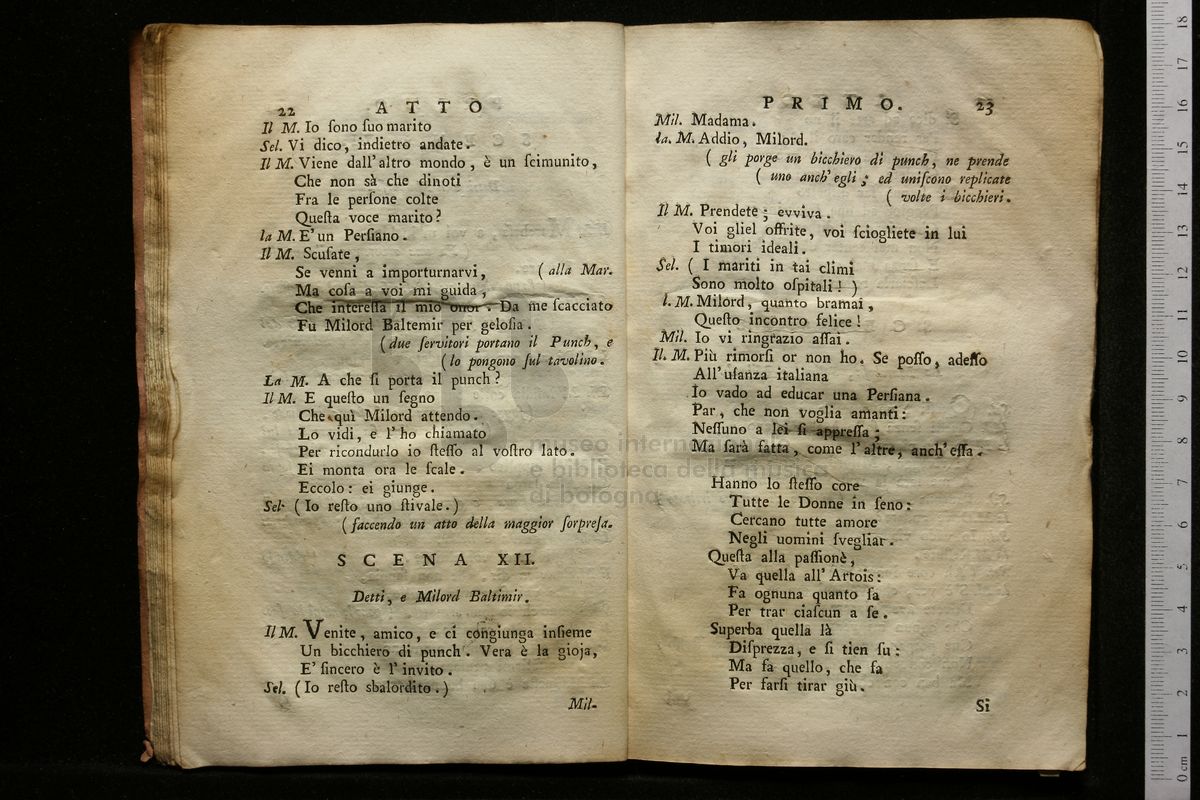 22 ATTO
Il M. Io ſono ſuo marito
Sel. Vi dico, indietro andate.
Il M. Viene dall' altro mondo, è un ſcimunito,
Che non sà che dinoti
Fra le perſone colte
Queſta voce marito?
la M. E' un Perſiano.
Il M. Scuſate,
Se venni a importunarvi, (alla Mar.
Ma coſa a voi mi guida,
Che intereſſa il mio onor. Da me ſcacciato
Fu Milord Baltemir per geloſia.
(due ſervitori portano il Punch, e
(lo pongono ſul tavolino.
La M. A che ſi porta il punch?
Il M. E queſto un ſegno
Che quì Milord attendo.
Lo vidi, e l' ho chiamato
Per ricondurlo io ſteſſo al voſtro lato.
Ei monta ora le ſcale.
Eccolo: ei giunge.
Sel. (Io reſto uno ſtivale.)
(faccendo un atto della maggior ſorpreſa.
SCENA XII.
Detti, e Milord Baltimir.
Il M. Venite, amico, e ci congiunga inſieme
Un bicchiero di punch. Vera è la gioja,
E' ſincero è l' invito.
Sel. (Io reſto sbalordito.)
Mil-
PRIMO. 23
Mil. Madama.
la. M. Addio, Milord.
( gli porge un bicchiero di punch, ne prende
( uno anch' egli; ed uniſcono replicate
( volte i bicchieri.
Il M. Prendete; evviva.
Voi gliel offrite, voi ſciogliete in lui
I timori ideali.
Sel. ( I mariti in tai climi
Sono molto oſpitali! )
l. M. Milord, quanto bramai,
Queſto incontro felice!
Mil. Io vi ringrazio aſſai.
Il. M. Più rimorſi or non ho. Se poſſo, adeſſo
All' uſanza italiana
Io vado ad educar una Perſiana.
Par, che non voglia amanti:
Neſſuno a lei ſi appreſſa;
Ma ſarà fatta, come l' altre, anch' eſſa.
Hanno lo ſteſſo core
Tutte le Donne in ſeno:
Cercano tutte amore
Negli uomini ſvegliar.
Queſta alla paſſionè,
Va quella all' Artois:
Fa ognuna quanto ſa
Per trar ciaſcun a ſe.
Superba quella là
Diſprezza, e ſi tien ſu:
Ma fa quello, che fa
Per farſi tirar giù.
Si
museo internazionale
e biblioteca della musica
di bologna
0 cm 1 2 3 4 5 6 7 8 9 10 11 12 13 14 15 16 17 18